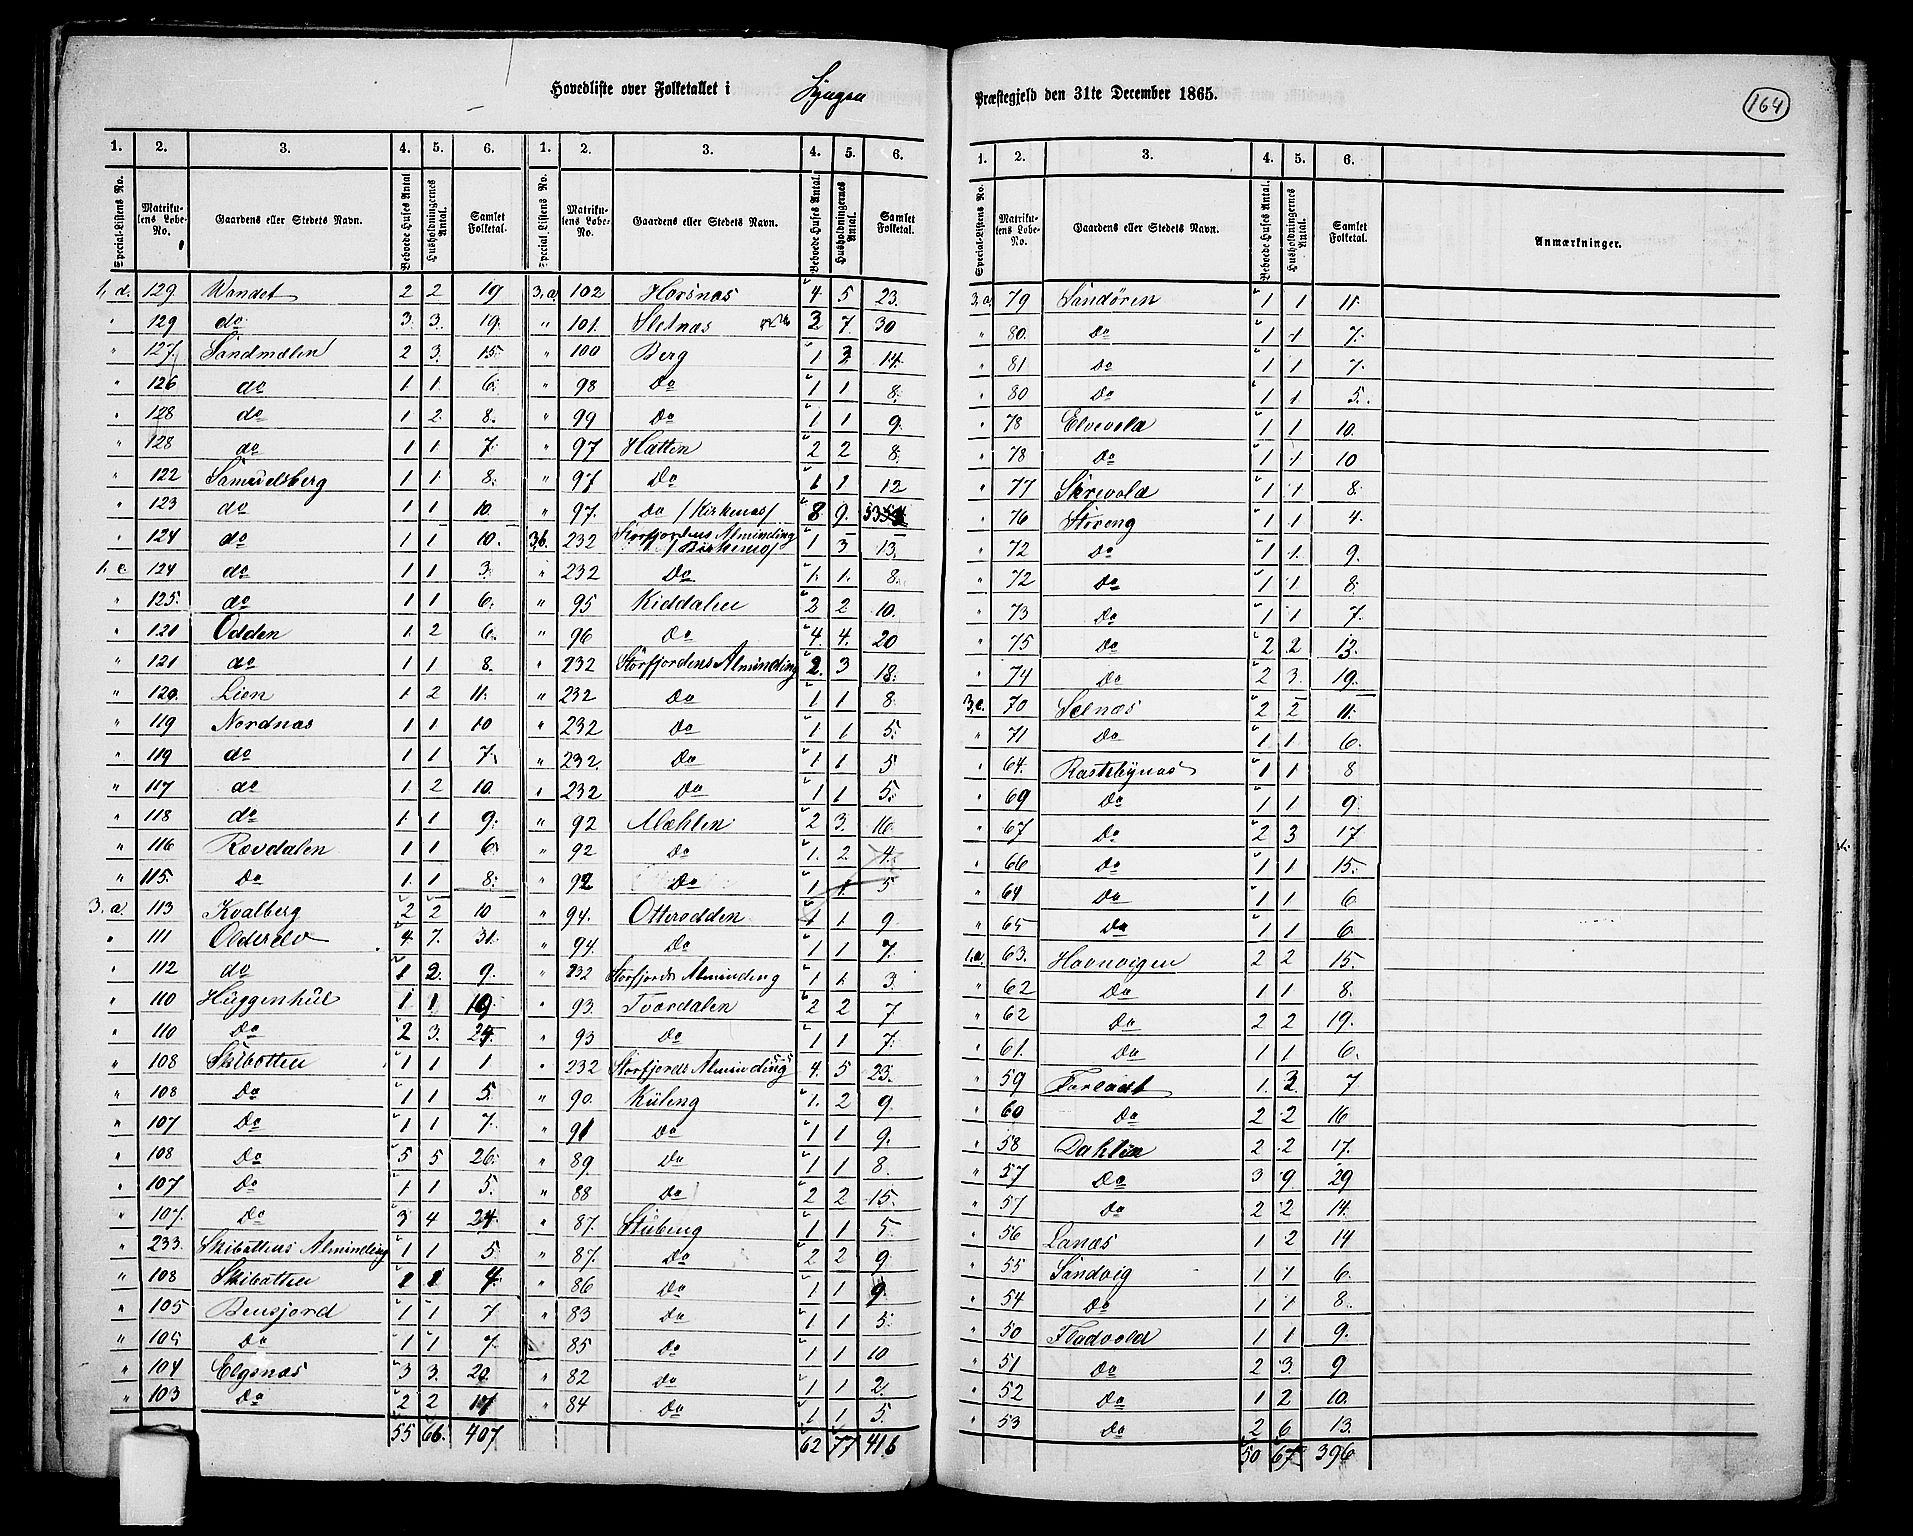 Hovedliste over Folketallet i Lyngen Præstegjeld den 31te December 1865.
164
1. 2. 3. 4. 5. 6. 1. 2. 3. 4. 5. 6.
Special-Listens No. Matrikulens Løbe-No. Gaardens eller Stedets Navn. Beboede Huses Antal Husholdningernes Antal. Samlet Folketal. Special-Listens No. Matrikulens Løbe-No. Gaardens eller Stedets Navn. Beboede Huses Antal. Husholdningernes Antal. Samlet Folketal.
1, d. 129 Wandet 2 2 19
" 129 do 3 3. 19.
" 127. Sandmælen 2 3. 15.
" 126 do 1. 1. 6.
" 128 do 1 2. 8.
" 128 do 1 1 7.
" 122 Samuelsberg 1 1. 8.
" 123 do 1 1 10
" 124 do 1 1 10.
1. e 124 do 1 1 3.
" 125. do 1 1 6.
" 121 Odden 1. 2 6.
" 121 do 1 1 8.
" 120. Lien 1. 2 11.
" 119 Nordnæs 1 1 10
" 119 do 1 1 7.
" 117 do 1. 2 10.
" 118 do 1. 1 9.
" 116 Røvdalen 1 1 6.
" 115. Do 1. 1 8.
3. a. 113 Kvalberg 2 2 10
" 111 Olderelv 4 7. 31.
" 112 do 1 2. 9.
" 110 Huggenhul 1 1 19
" 110 Do 2 3. 24
" 108 Skibotten 1 1 1
" 108 Do 1 1 5.
" 107 Do 1 1 7.
" 108 Do 5 5 26.
" 107 Do 1 1 5.
" 107. Do 3 4 24
" 233. Skibottens Alminding 1 1 5.
" 108 Skibotten 1 1 4.
" 105 Bensjord 1 1 7
" 105 Do 1 1 7.
" 104 Elgsnæs 3 3. 20.
" 103 Do 2 2 17
55 66. 407
3, a 102 Horsnæs 4 5 23.
" 101. Sletnæs 3 7. 30
" 100 Berg 1 3 14.
" 98 Do 1 1 8.
" 99 Do 1 1 9.
" 97 Hatten 2 2 8.
" 97 Do 1 1 12
" 97. do /Kirkenæs/ 8 9. 53
3,b. 232 Storfjordens Alminding /Birkemo/ 1 3 13.
" 232 Do 1. 1. 8.
" 95 Kiddalen 2 2 10.
" 96 Do 4. 4. 20
" 232 Storfjordens Alminding 2. 3 18.
" 232 Do 1 1 8
" 232 Do 1 1 5.
" 232. Do 1 1 5
" 232 Do 1 1 5.
" 92 Mæhlen. 2 3. 16
" 92 Do 1. 2 4.
" 92 Do 1 1 5
" 94. Otterodden 1 1 9
" 94. Do 1 1 7.
" 232 Storfjords Alminding 1 1. 3
" 93. Tværdalen 2 2 7
" 93 Do 1 1 7.
" 232 Storfjords Alminding 4. 5 23.
" 90. Kileng 1. 2 9.
" 91 Do 1 1 9.
" 89 Do 1 1 8.
" 88 Do 2 2 15.
" 87. Stubeng 1 1 5.
" 87. Do 2 2 9
" 86 Do 1 1 9.
" 83 Do 1 1 5.
" 85 Do 1 1 10
" 82 Do 1 1 2.
" 84 Do 1 1 5.
62 77 416
1. 2. 3. 4. 5. 6.
Special-Listens No. Matrikulens Løbe-No. Gaardens eller Stedets Navn. Beboede Huses Antal. Husholdningernes Antal. Samlet Folketal. Anmærkninger.
3, a. 79 Sandøren 1 1 11
" 80. Do 1 1 7.
" 81 Do 1 1 7.
" 80 Do 1 1 5.
" 78 Elvevold 1 1 10.
" 78 Do 1 1 10
" 77 Skrevold 1 1 8.
" 76 Støreng 1 1 4.
" 72 Do 1 1. 9.
" 72 Do 1 1 8.
" 73 Do 1 1 7.
" 75 Do 2 2 13.
" 74 Do 2 3. 19.
3,c. 70 Selnæs 2 2 11.
" 71 Do 1 1 6.
" 64. Rastebynæs 1 1 8
" 69 Do 1 1 9.
" 67 Do 2 3 17
" 66 Do 1 1 15.
" 64 Do 1 1 6
" 65 Do 1 1 6.
1.a. 63. Havnvigen 2 2 15.
" 62 Do 1 1 8.
" 62 Do 2 2 19.
" 61. Do 1 1 6.
" 59 1. 2. 7
" 60 Do 2 2 16
" 58 Dahlen 2 2 17.
" 57 Do 3 9 29
" 57 Do 2 2 14.
" 56 Lanæs 1 2 14
" 55 Sandvig 1 1 6.
" 54 Do 1 1 8.
" 50 Fladvold 1 1 9.
" 51 Do 2 3. 9
" 52 Do 1 2 10.
" 53 Do 2 6 13.
50 67 396